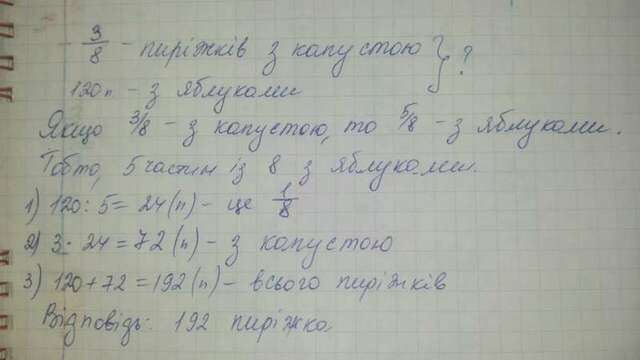 3/8 - пиріжків з капустою } ?
120п - з яблуками
Якщо 3/8 - з капустою, то 5/8 - з яблуками.
Тобто, 5 частин із 8 з яблуками.
1) 120 : 5 = 24 (п) - це 1/8
2) 3 · 24 = 72 (п) - з капустою
3) 120 + 72 = 192 (п) - всього пиріжків
Відповідь: 192 пиріжка